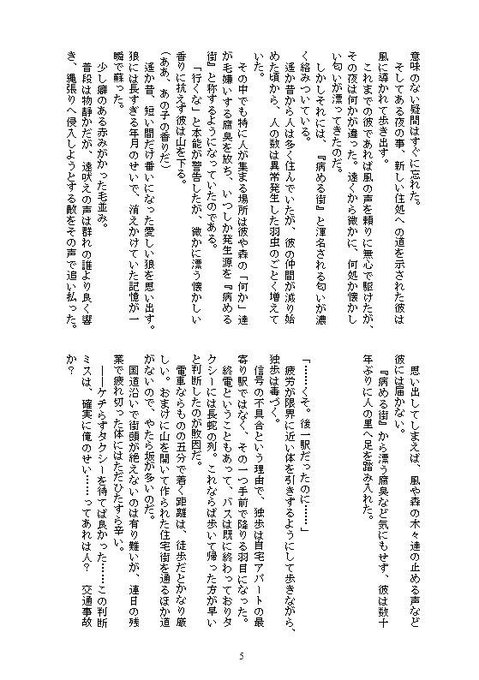 意味のない疑問はすぐに忘れた。
　そしてある夜の事、新しい住処への道を示された彼は
風に導かれて歩き出す。
　これまでの彼であれば風の声を頼りに無心で駆けたが、
その夜は何かが違った。遠くから微かに、何処か懐かし
い匂いが漂ってきたのだ。
　しかしそれには、『病める街』と渾名される匂いが濃
く絡みついている。
　遥か昔から人は多く住んでいたが、彼の仲間が減り始
めた頃から、人の数は異常発生した羽虫のごとく増えて
いた。
　その中でも特に人が集まる場所は彼や森の「何か」達
が毛嫌いする腐臭を放ち、いつしか発生源を『病める
街』と称するようになっていたのである。
　「行くな」と本能が警告したが、微かに漂う懐かしい
香りに抗えず彼は山を下る。
（ああ、あの子の香りだ）
　遥か昔、短い間だけ番いになった愛しい狼を思い出す。
狼には長すぎる年月のせいで、消えかけていた記憶が一
瞬で蘇った。
　少し癖のある赤みがかった毛並み。
　普段は物静かだが、遠吠えの声は群れの誰より良く響
き、縄張りへ侵入しようとする敵をその声で追い払った。
　思い出してしまえば、風や森の木々達の止める声など
彼には届かない。
　『病める街』から漂う腐臭など気にもせず、彼は数十
年ぶりに人の里へ足を踏み入れた。
「……くそ。後一駅だったのに……」
　疲労が限界に近い体を引きずるようにして歩きながら、
独歩は毒づく。
　信号の不具合という理由で、独歩は自宅アパートの最
寄り駅ではなく、その一つ手前で降りる羽目になった。
　終電ということもあって、バスは既に終わっておりタ
クシーには長蛇の列。これならば歩いて帰った方が早い
と判断したのが敗因だ。
　電車ならものの五分で着く距離は、徒歩だとかなり厳
しい。おまけに山を開いて作られた住宅街を通るほか道
がないので、やたら坂が多いのだ。
　国道沿いで街頭が絶えないのは有り難いが、連日の残
業で疲れ切った体にはただひたすら辛い。
　――ケチらずタクシーを待てば良かった……この判断
ミスは、確実に俺のせい……ってあれは人？　交通事故
か？
5